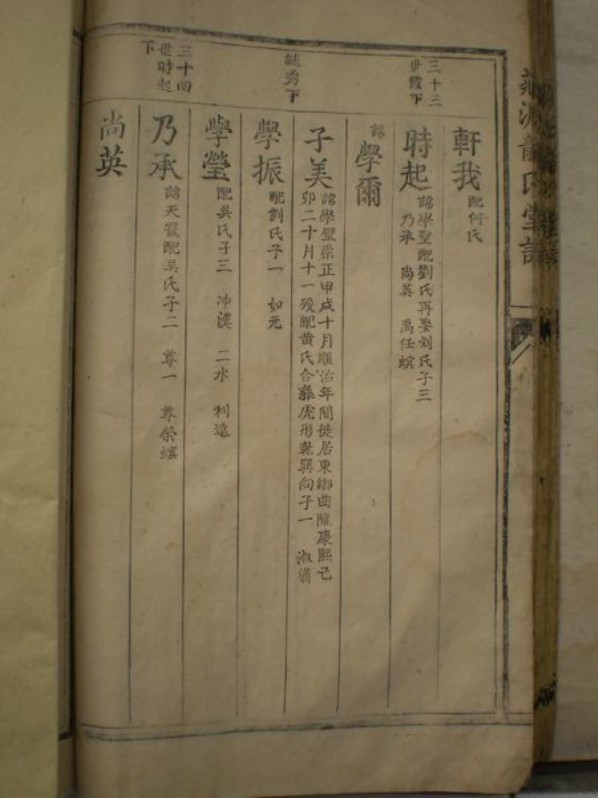 三十三
世霞下
軒我 配何氏
時起 諱學聖配劉氏再娶刘氏子三
乃承 尚英 禹任螟
諱學爾
毓秀下
子美 諱學璧崇正甲戌十月順治年間徙居東鄉曲隴康熙己
卯二十月十一歿配黄氏合葬虎形乾巽向子一 淑
學振 配劉氏子一 如元
學瑩 配吳氏子三 冲漢 二水 利遠
三十四
世時起
下
乃承 諱天配吳氏子二 尊一 尊榮螟
尚英